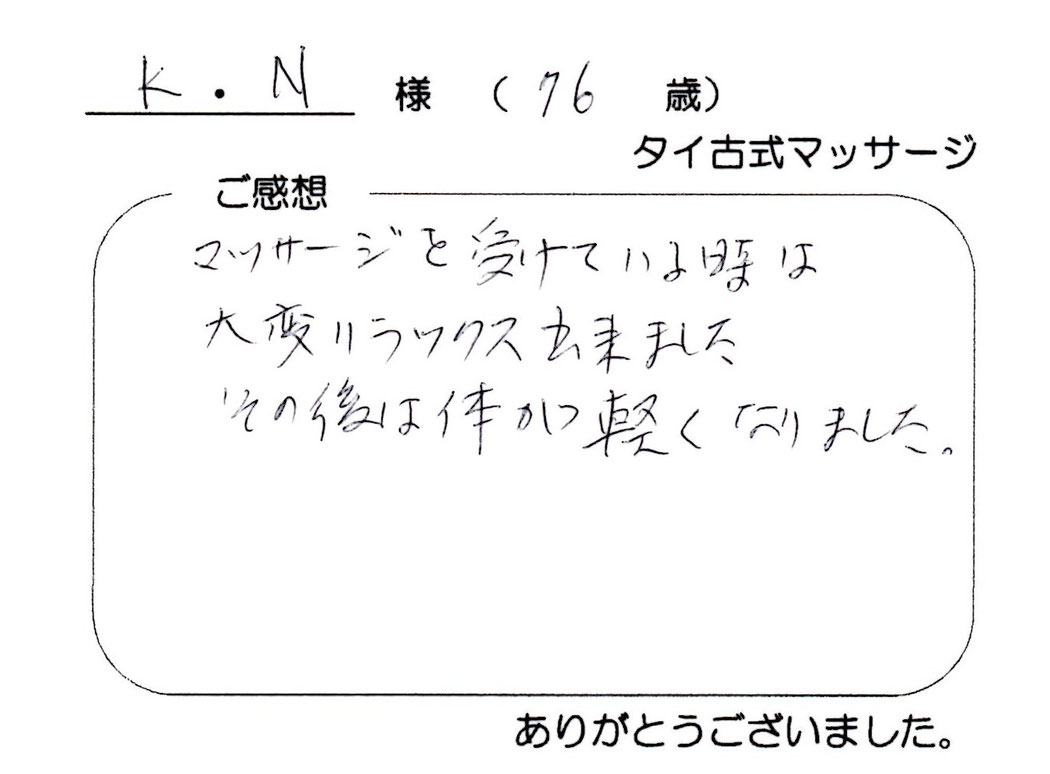 K.N 様 (76 歳)
タイ古式マッサージ
ご感想
マッサージを受けている時は
大変リラックス出来ました
その後は体がつ軽くなりました。
ありがとうございました。